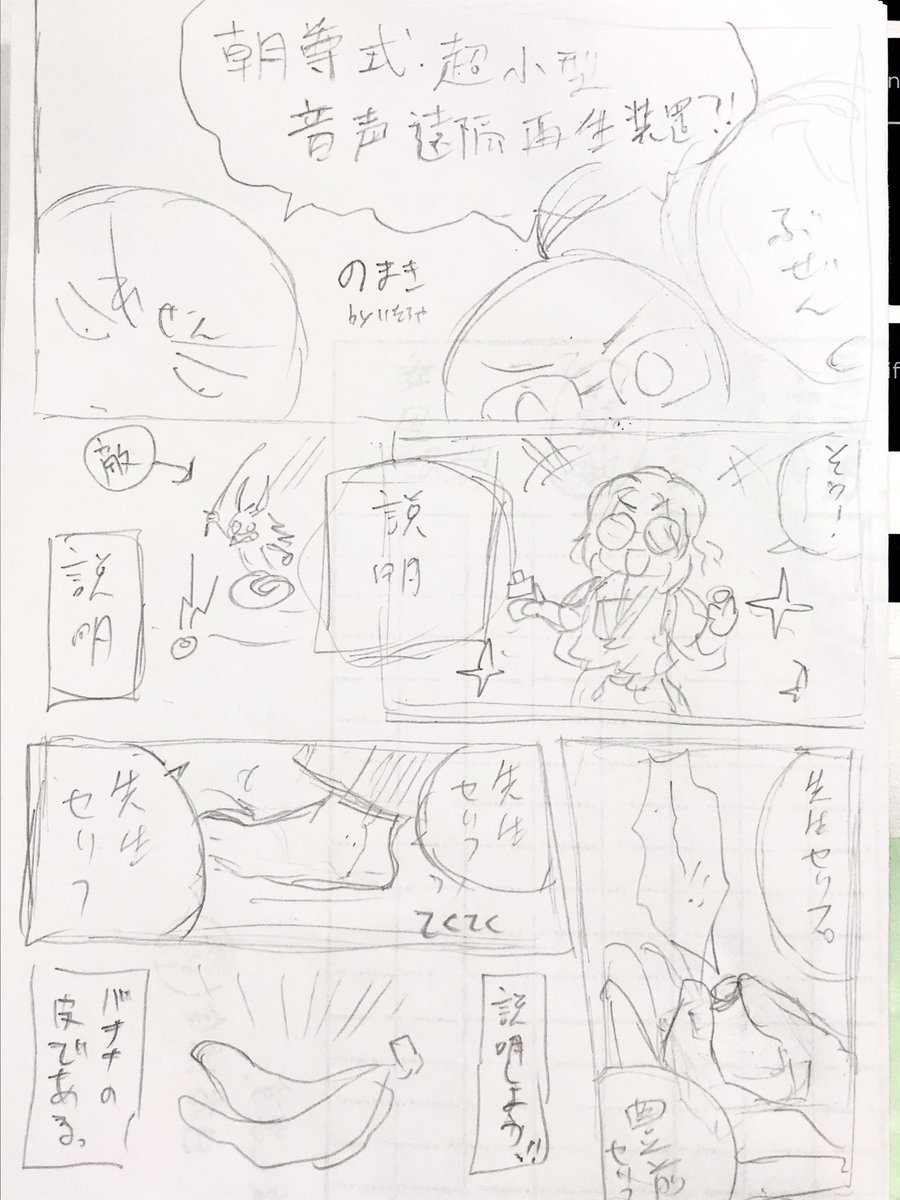 朝尊式・超小型
音声遠隔再生装置?!
ぶぜん
のまき
あせん
そうー!
説明
敵
説明
先生セリフ。
先生
セリフ
てくてく
先生
セリフ
説明しよう!!
バナナの
皮である。